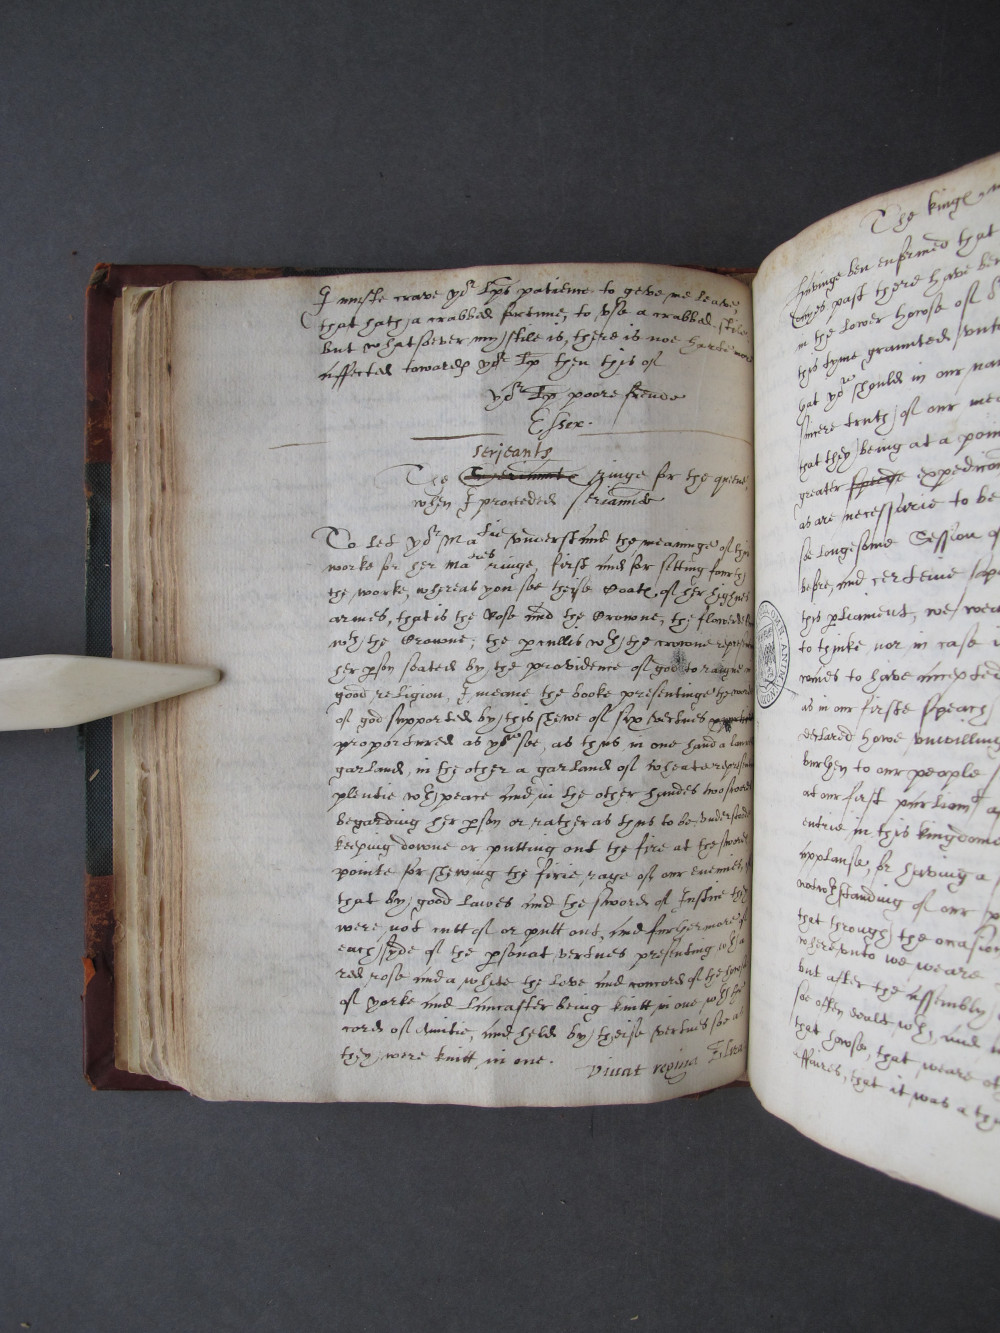 I muste crave yor Lps patience to geve me leave
that hath a crabbed fortune, to use a crabbed stile
but whatsoever my stile is, there is noe harte more
affected towards yor Lp then this of
yor Lp poore frende
Essex.
serjeants
The ringe for the queene,
when I proceeded seriannte
To let yor Matie understand the meaninge of this
worke for her Maties ringe, first and for sitting fourth
the worke, whereas you see theise Coats of her highnes
armes, that is the Rose and the Crowne, the flowerde
wth the Crowne, the percullis wth the crowne
her pson seated by the providence of god to raigne in
good religion, I meane the booke presentinge the word
of god supported by this shewe of six vertues
proporcioned as you see, as thus in one hand a lawrell
garland, in the other a garland of wheate
plentie wth peace and in the other handes two swords
begarding her pson or rather as thus to be understood
keeping downe or putting out the fire at the swords
pointe for shewing the firie rage of our enemies,
that by good lawes and the sword of Justice they
were not cutt of or putt out, and furthermore of
each syde of the psonat vertues presenting wth a
red rose and a white the love and concord of the howse
of Yorke and Lancaster being knitt in one, wth the
cord of Amitie, and held by theise vertues soe as
they were knitt in one.
Vivat regina Eliza
The kings
Havinge ben enformed that
tymes past there have ben
in the lower howse of
this tyme graunted unto
that yow should in our name
sincere truth of our
that they being at a point
greater speede expedicon
as are necessarie to be
soe longesome Session of
before, and certeine
this parliament, we
to thinke nor in case
comes to have
is in our firste speach
declared howe unwilling
burthen to our people
at our first
entrie in this kingdome
applause, or having a
notwthstanding of our
that through the occasion
whereunto we weare
but after the assembly
soe often dealt wth, and
that howse, that weare
affaires, that it was a